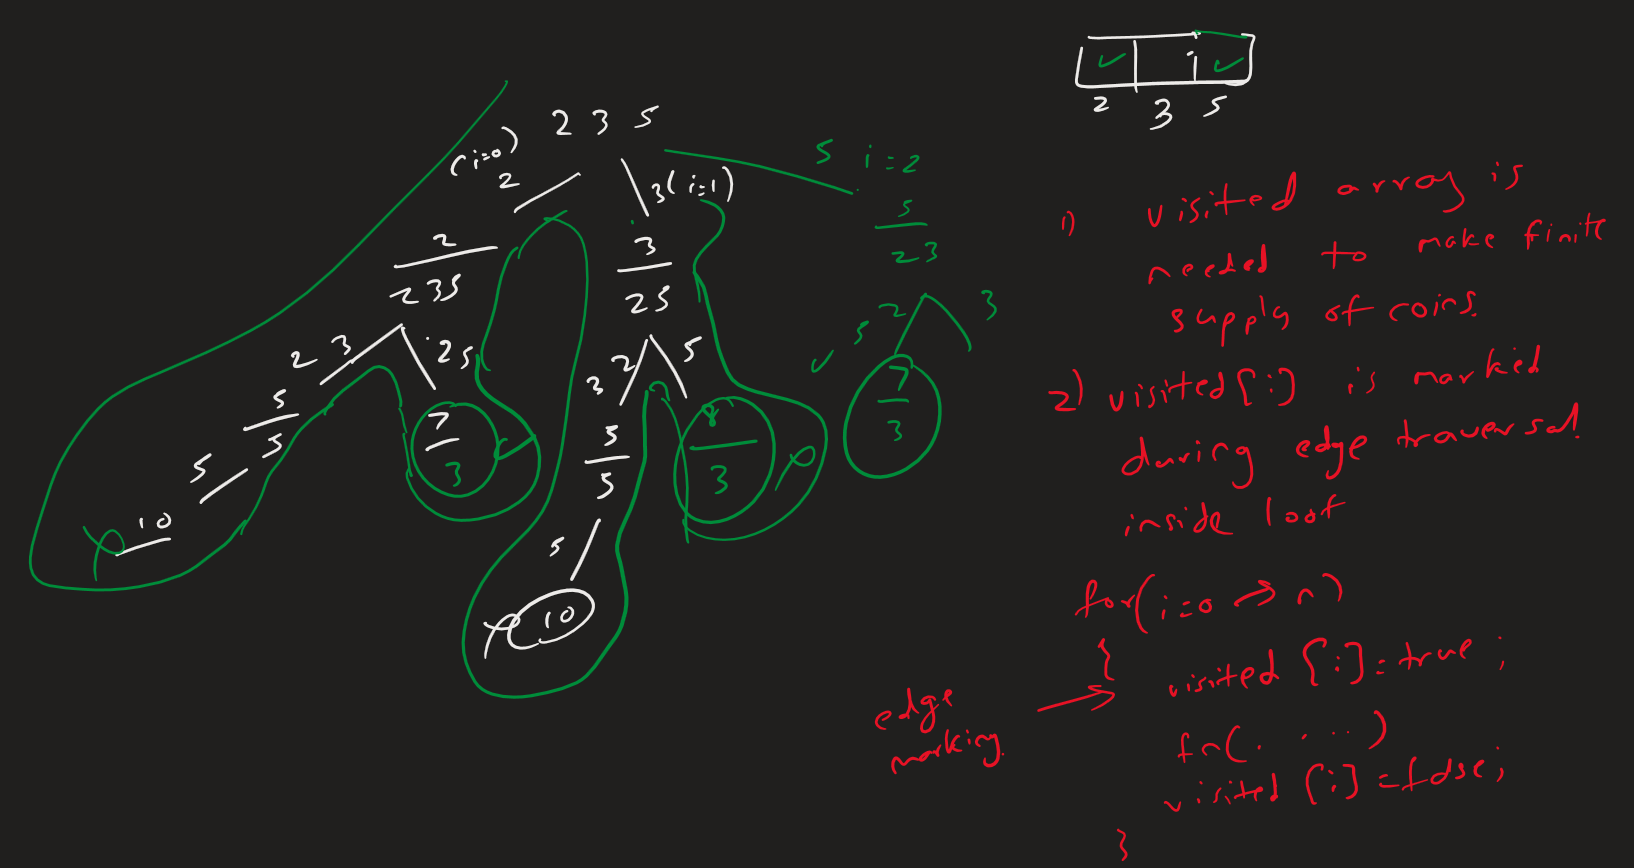 2 3 5
2 3 5
(i=0)
2
3(i=1)
5 i=2
2
2 3 5
3
2 5
5
2 3
2 3
2 5
3 2
5
5 2
3
5
5
7
3
5
5
8
3
7
3
5
10
5
10
1) visited array is
needed to make finite
supply of coins.
2) visited[i] is marked
during edge traversal
inside loop
for(i=0 → n)
{
visited [i]=true;
edge
marking.
fn(. . ...)
visited [i]=false;
}